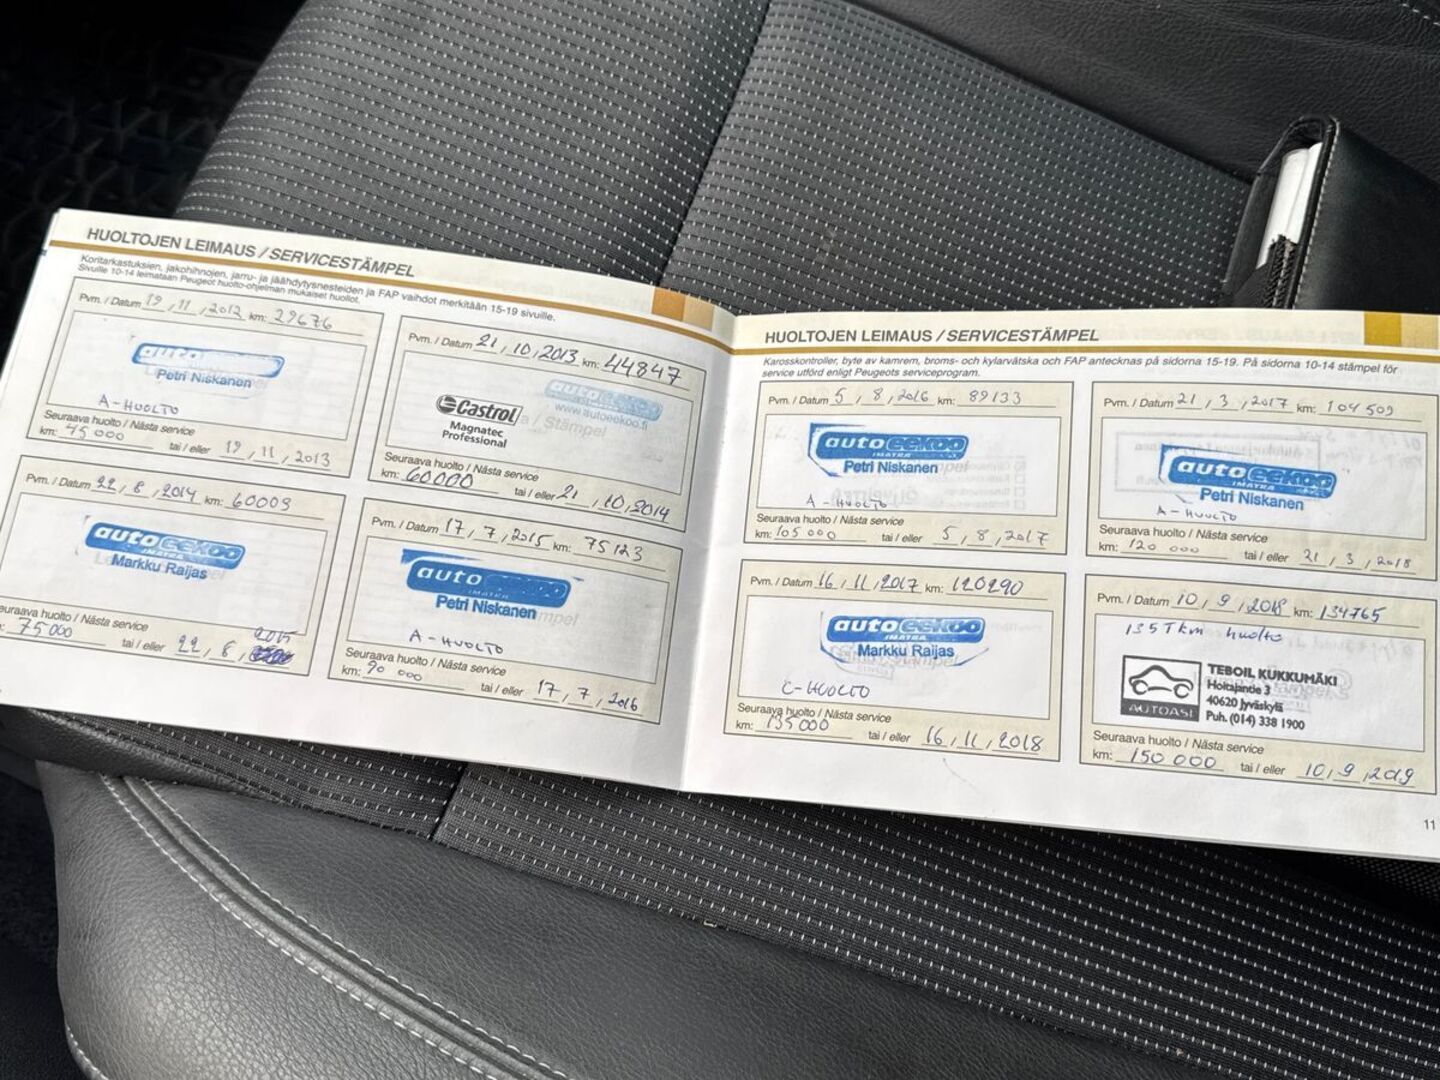 HUOLTOJEN LEIMAUS / SERVICESTÄMPEL
Koritarkastuksien, jakohihnojen, jarru- ja jäähdytysnesteiden ja FAP vaihdot merkitään 15-19 sivuille.
Sivuille 10-14 leimataan Peugeot huolto-ohjelman mukaiset huollot.
Pvm. / Datum 19, 11, 2012 km: 29676
autoeekoo
Petri Niskanen
A-HUOLTO
Seuraava huolto / Nästa service
km: 45 000 tai / eller 19, 11, 2013
Pvm. / Datum 21, 10, 2013 km: 44847
autoeekoo
www.autoeekoo.fi
Castrol
Magnatec
Professional
Seuraava huolto / Nästa service
km: 60000 tai / eller 21, 10, 2014
Pvm. / Datum 22, 8, 2014 km: 60009
autoeekoo
IMATRA
Markku Raijas
euraava huolto / Nästa service
: 75000 tai / eller 22, 8, 2015
Pvm. / Datum 17, 7, 2015 km: 75123
autoeekoo
IMATRA
Petri Niskanen
A-HUOLTO
Seuraava huolto / Nästa service
km: 90 000 tai / eller 17, 7, 2016
HUOLTOJEN LEIMAUS / SERVICESTÄMPEL
Karosskontroller, byte av kamrem, broms- och kylarvätska och FAP antecknas på sidorna 15-19. På sidorna 10-14 stämpel för
service utförd enligt Peugeots serviceprogram.
Pvm. / Datum 5, 8, 2016 km: 89133
autoeekoo
IMATRA
Petri Niskanen
A-HUOLTO
Seuraava huolto / Nästa service
km: 105 000 tai / eller 5, 8, 2017
Pvm. / Datum 21, 3, 2017 km: 104 509
autoeekoo
IMATRA
Petri Niskanen
A-HUOLTO
Seuraava huolto / Nästa service
km: 120 000 tai / eller 21, 3, 2018
Pvm. / Datum 16, 11, 2017 km: 120290
autoeekoo
IMATRA
Markku Raijas
C-HUOLTO
Seuraava huolto / Nästa service
km: 135000 tai / eller 16, 11, 2018
Pvm. / Datum 10, 9, 2018 km: 134765
135 Tkm huolto
AUTOASI
TEBOIL KUKKUMÄKI
Holtajantie 3
40620 Jyväskylä
Puh. (014) 338 1900
Seuraava huolto / Nästa service
km: 150 000 tai / eller 10, 9, 2019
11